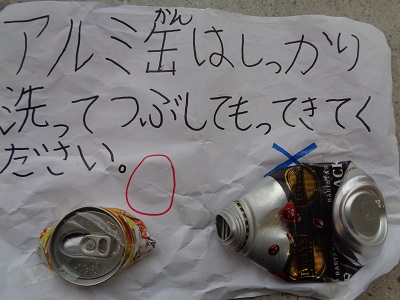 アルミ缶はしっかり
かん
洗ってつぶしてもってきてく
ださい。